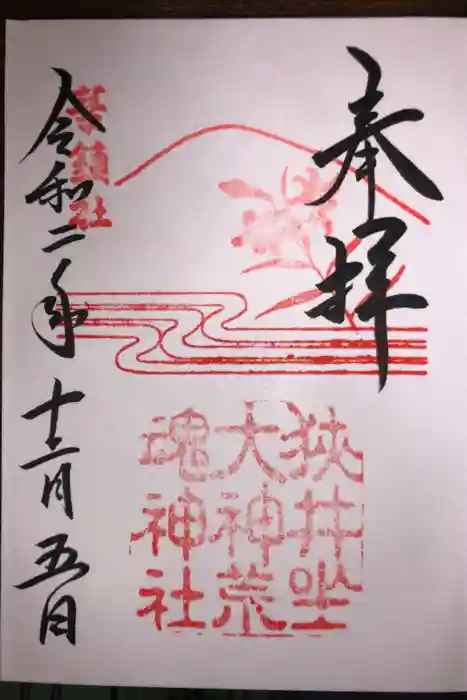 奉拝
狭井坐
大神荒
魂神社
華鎮社
令和二年十二月五日